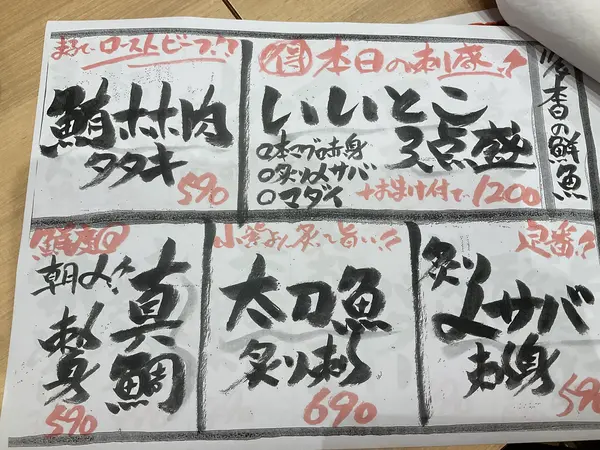 の鮮魚
得 本日の刺盛!!
いいとこ
3点盛
○本マグロ赤身
○炙り〆サバ
○マダイ
+おまけ付で、1200
まるでローストビーフ!!
鮪ホホ肉
タタキ
590
定番!!
炙り
〆サバ
刺身
590
炙って旨い!!
太刀魚
炙り刺し
690
鮮度◎
朝〆!!
真鯛
刺身
590